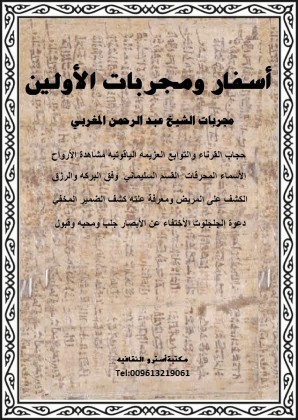 أسفار ومجربات الأولين
مجربات الشيخ عبد الرحمن المغربي
حجاب القرناء والتوابع العزيمه الياقوتيه مشاهدة الأرواح
الأسماء المحرقات القسم السليماني وفق البركه والرزق
الكشف على المريض ومعرفة علته كشف الضمير المخفي
دعوة الجلجلوت الأختفاء عن الأبصار جلب ومحبه وقبول
مكتبة أسترو الثقافيه
Tel:009613219061